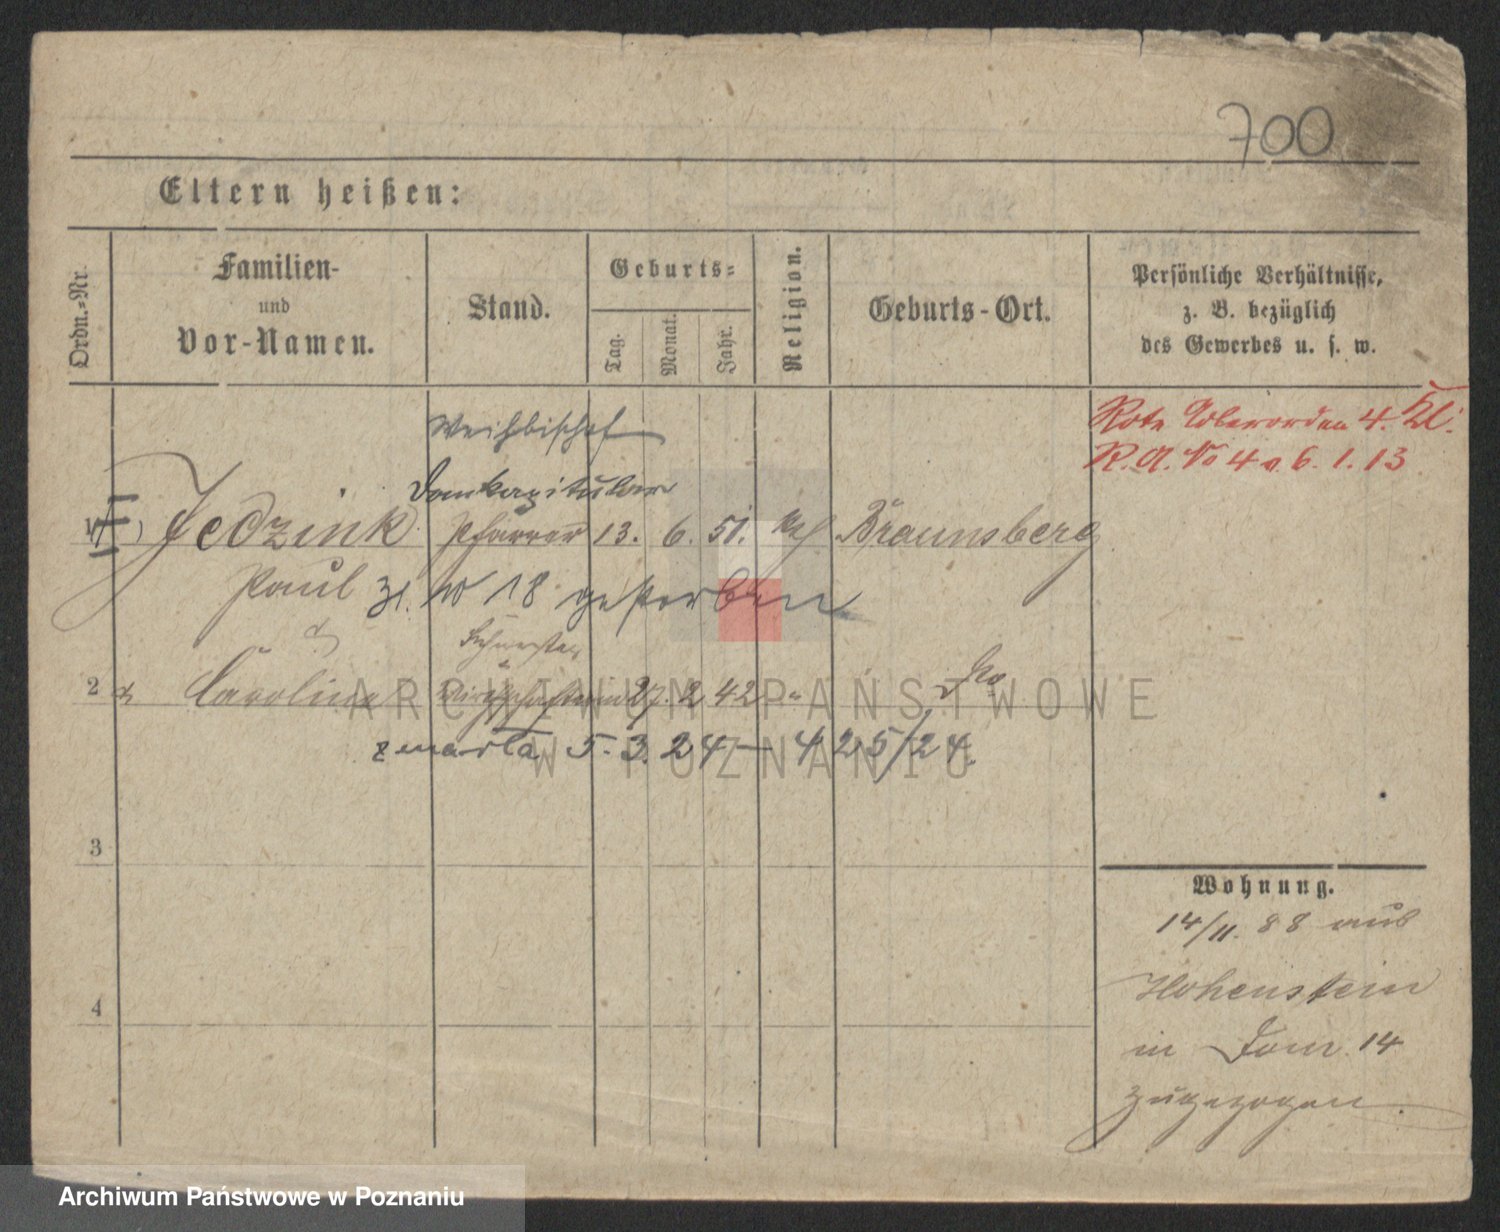 700
Eltern heißen:
Ordn.-Nr.
Familien-
und
Vor-Namen.
Stand.
Geburts-
Tag.
Monat.
Jahr.
Religion.
Geburts-Ort.
Persönliche Verhältnisse,
z. B. bezüglich
des Gewerbes u. s. w.
Rote Adlerorden 4. Kl.
R.A. No 4 v. 6. 1. 13
Weihbischof
Domkapitular
Jedzink Pfarrer 13. 6. 51. kath Braunsberg
Paul 31. 10 18 gestorben
Schwester
2 Caroline Wirthschafterin 27. 2 42 " do
zmarła 5. 3. 24 — 425/24.
3
4
Wohnung.
14/11. 88 aus
Hohenstein
in Dom 14
zugezogen.
ARCHIWUM PAŃSTWOWE
W POZNANIU
Archiwum Państwowe w Poznaniu